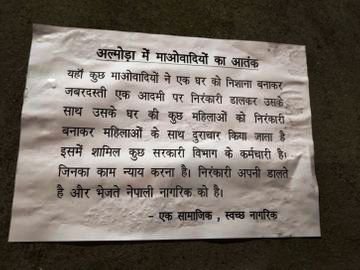 अल्मोड़ा में माओवादियों का आतंक
यहाँ कुछ माओवादियों ने एक घर को निशाना बनाकर
जबरदस्ती एक आदमी पर निरंकारी डालकर उसके
साथ उसके घर की कुछ महिलाओं को निरंकारी
बनाकर महिलाओं के साथ दुराचार किया जाता है
इसमें शामिल कुछ सरकारी विभाग के कर्मचारी है।
जिनका काम न्याय करना है। निरंकारी अपनी डालते
है और भेजते नेपाली नागरिक को है।
– एक सामाजिक , स्वच्छ नागरिक